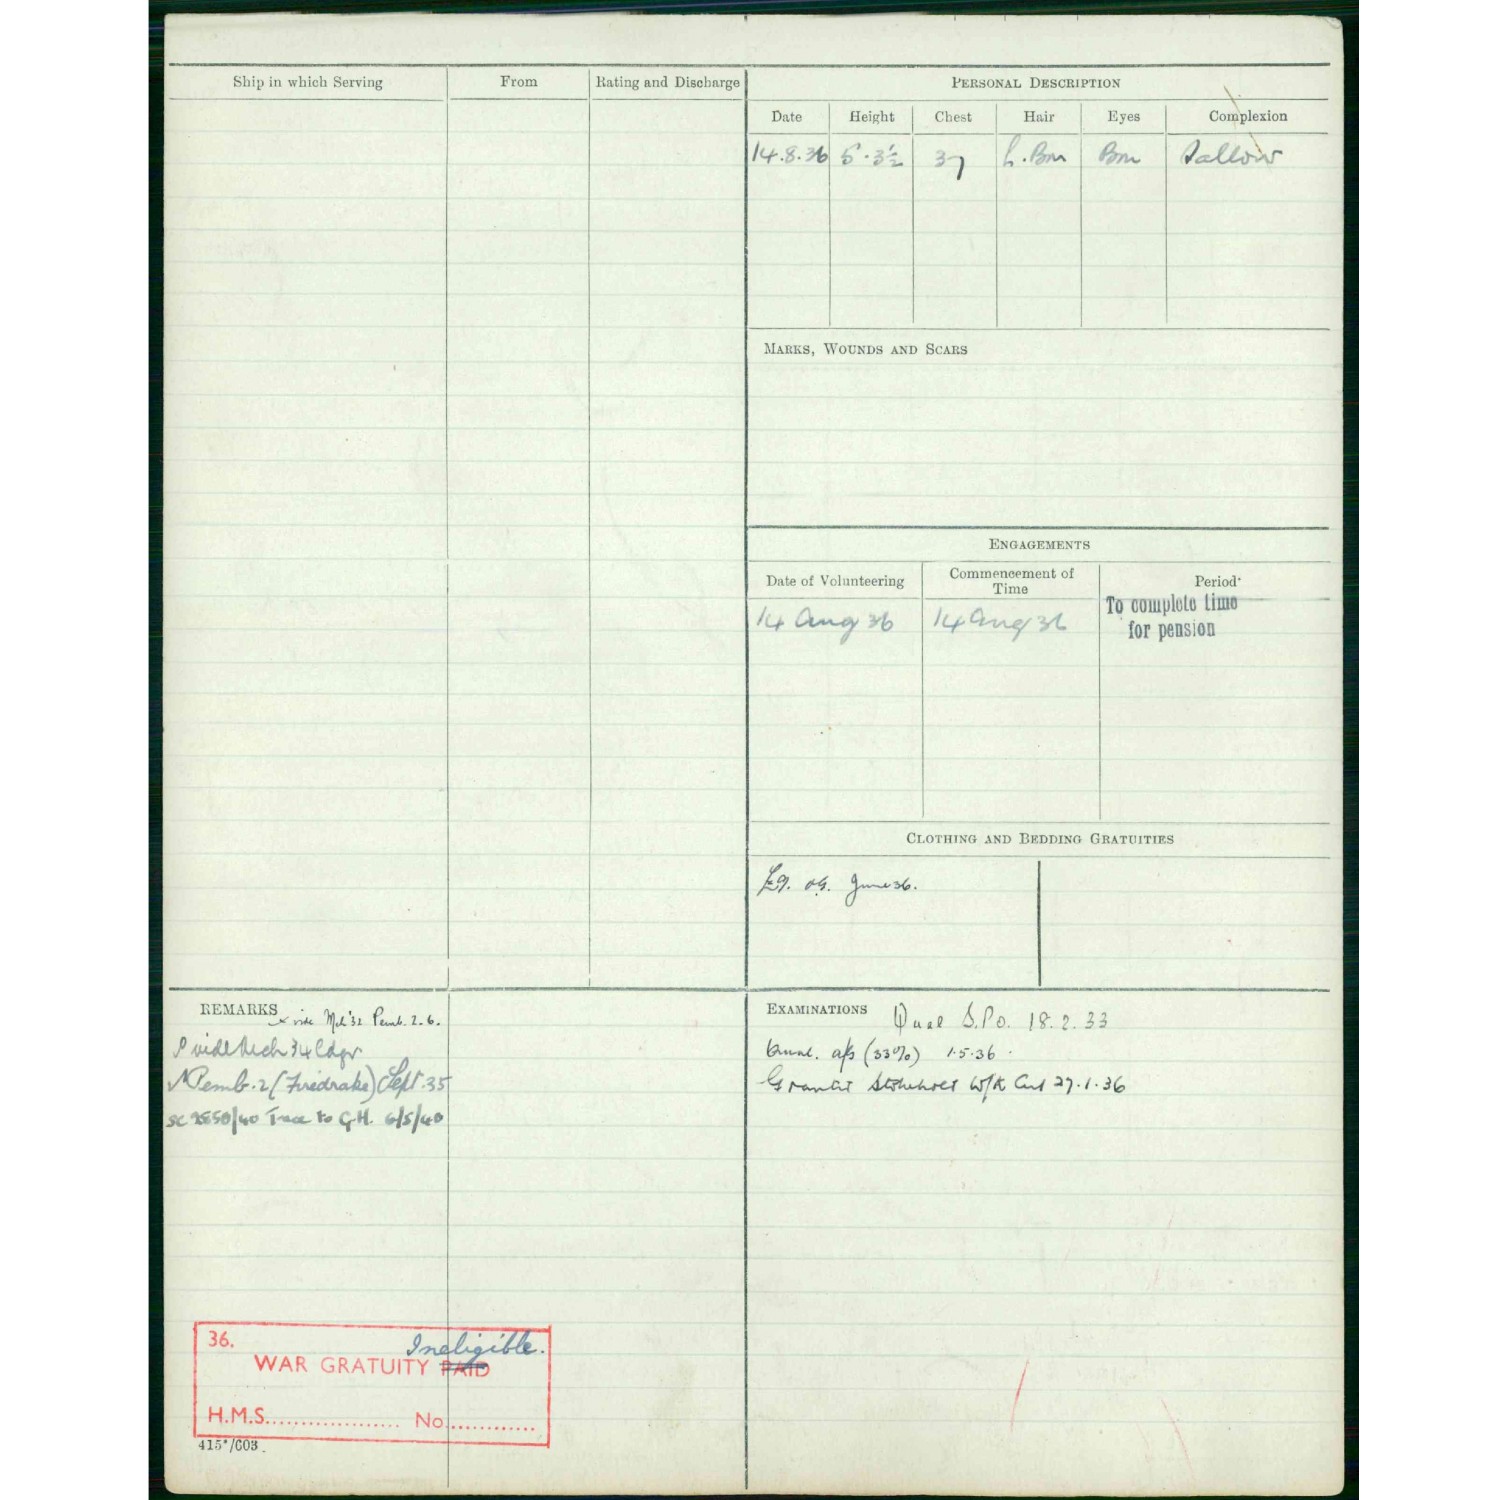 Ship in which Serving
From
Rating and Discharge
PERSONAL DESCRIPTION
Date
Height
Chest
Hair
Eyes
Complexion
14.8.36
5.3½
37
L. Brn
Brn
Sallow
MARKS, WOUNDS AND SCARS
ENGAGEMENTS
Date of Volunteering
Commencement of
Time
Period
14 Aug 36
14 Aug 36
To complete time
for pension
CLOTHING AND BEDDING GRATUITIES
£9. June 36.
REMARKS
vide Mch '32 Pemb. 2. 6.
vide Mch 34 Ldgr
N Pemb. 2 (Firedrake) Sept. 35
SC /40 Trace to G.H. 6/5/40
EXAMINATIONS
Qual S.P.O. 18.2.33
Qual. (33%) 1.5.36
Granted Stokehold W/K Cert 27.1.36
36.
Ineligible.
WAR GRATUITY PAID
H.M.S. No.
415*/603.